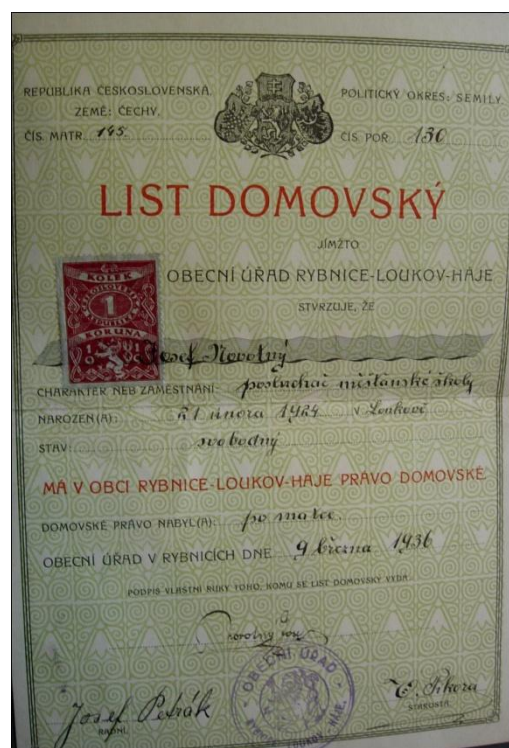 REPUBLIKA ČESKOSLOVENSKÁ.
ZEMĚ: ČECHY.
ČÍS. MATR. 145.
POLITICKÝ OKRES: SEMILY.
ČÍS. POŘ. 130
LIST DOMOVSKÝ
JÍMŽTO
OBECNÍ ÚŘAD RYBNICE-LOUKOV-HÁJE
STVRZUJE, ŽE
KOLEK
1
KORUNA
Josef Novotný
CHARAKTER NEB ZAMĚSTNÁNÍ: posluchač měšťanské školy
NAROZEN(A): 21 února 1924 v Loukově
STAV: svobodný
MÁ V OBCI RYBNICE-LOUKOV-HÁJE PRÁVO DOMOVSKÉ
DOMOVSKÉ PRÁVO NABYL(A): po matce.
OBECNÍ ÚŘAD V RYBNICÍCH DNE 9 března 1936
PODPIS VLASTNÍ RUKY TOHO, KOMU SE LIST DOMOVSKÝ VYDÁ
Novotný
OBECNÍ ÚŘAD
Josef Petrák
RADNÍ.
STAROSTA.